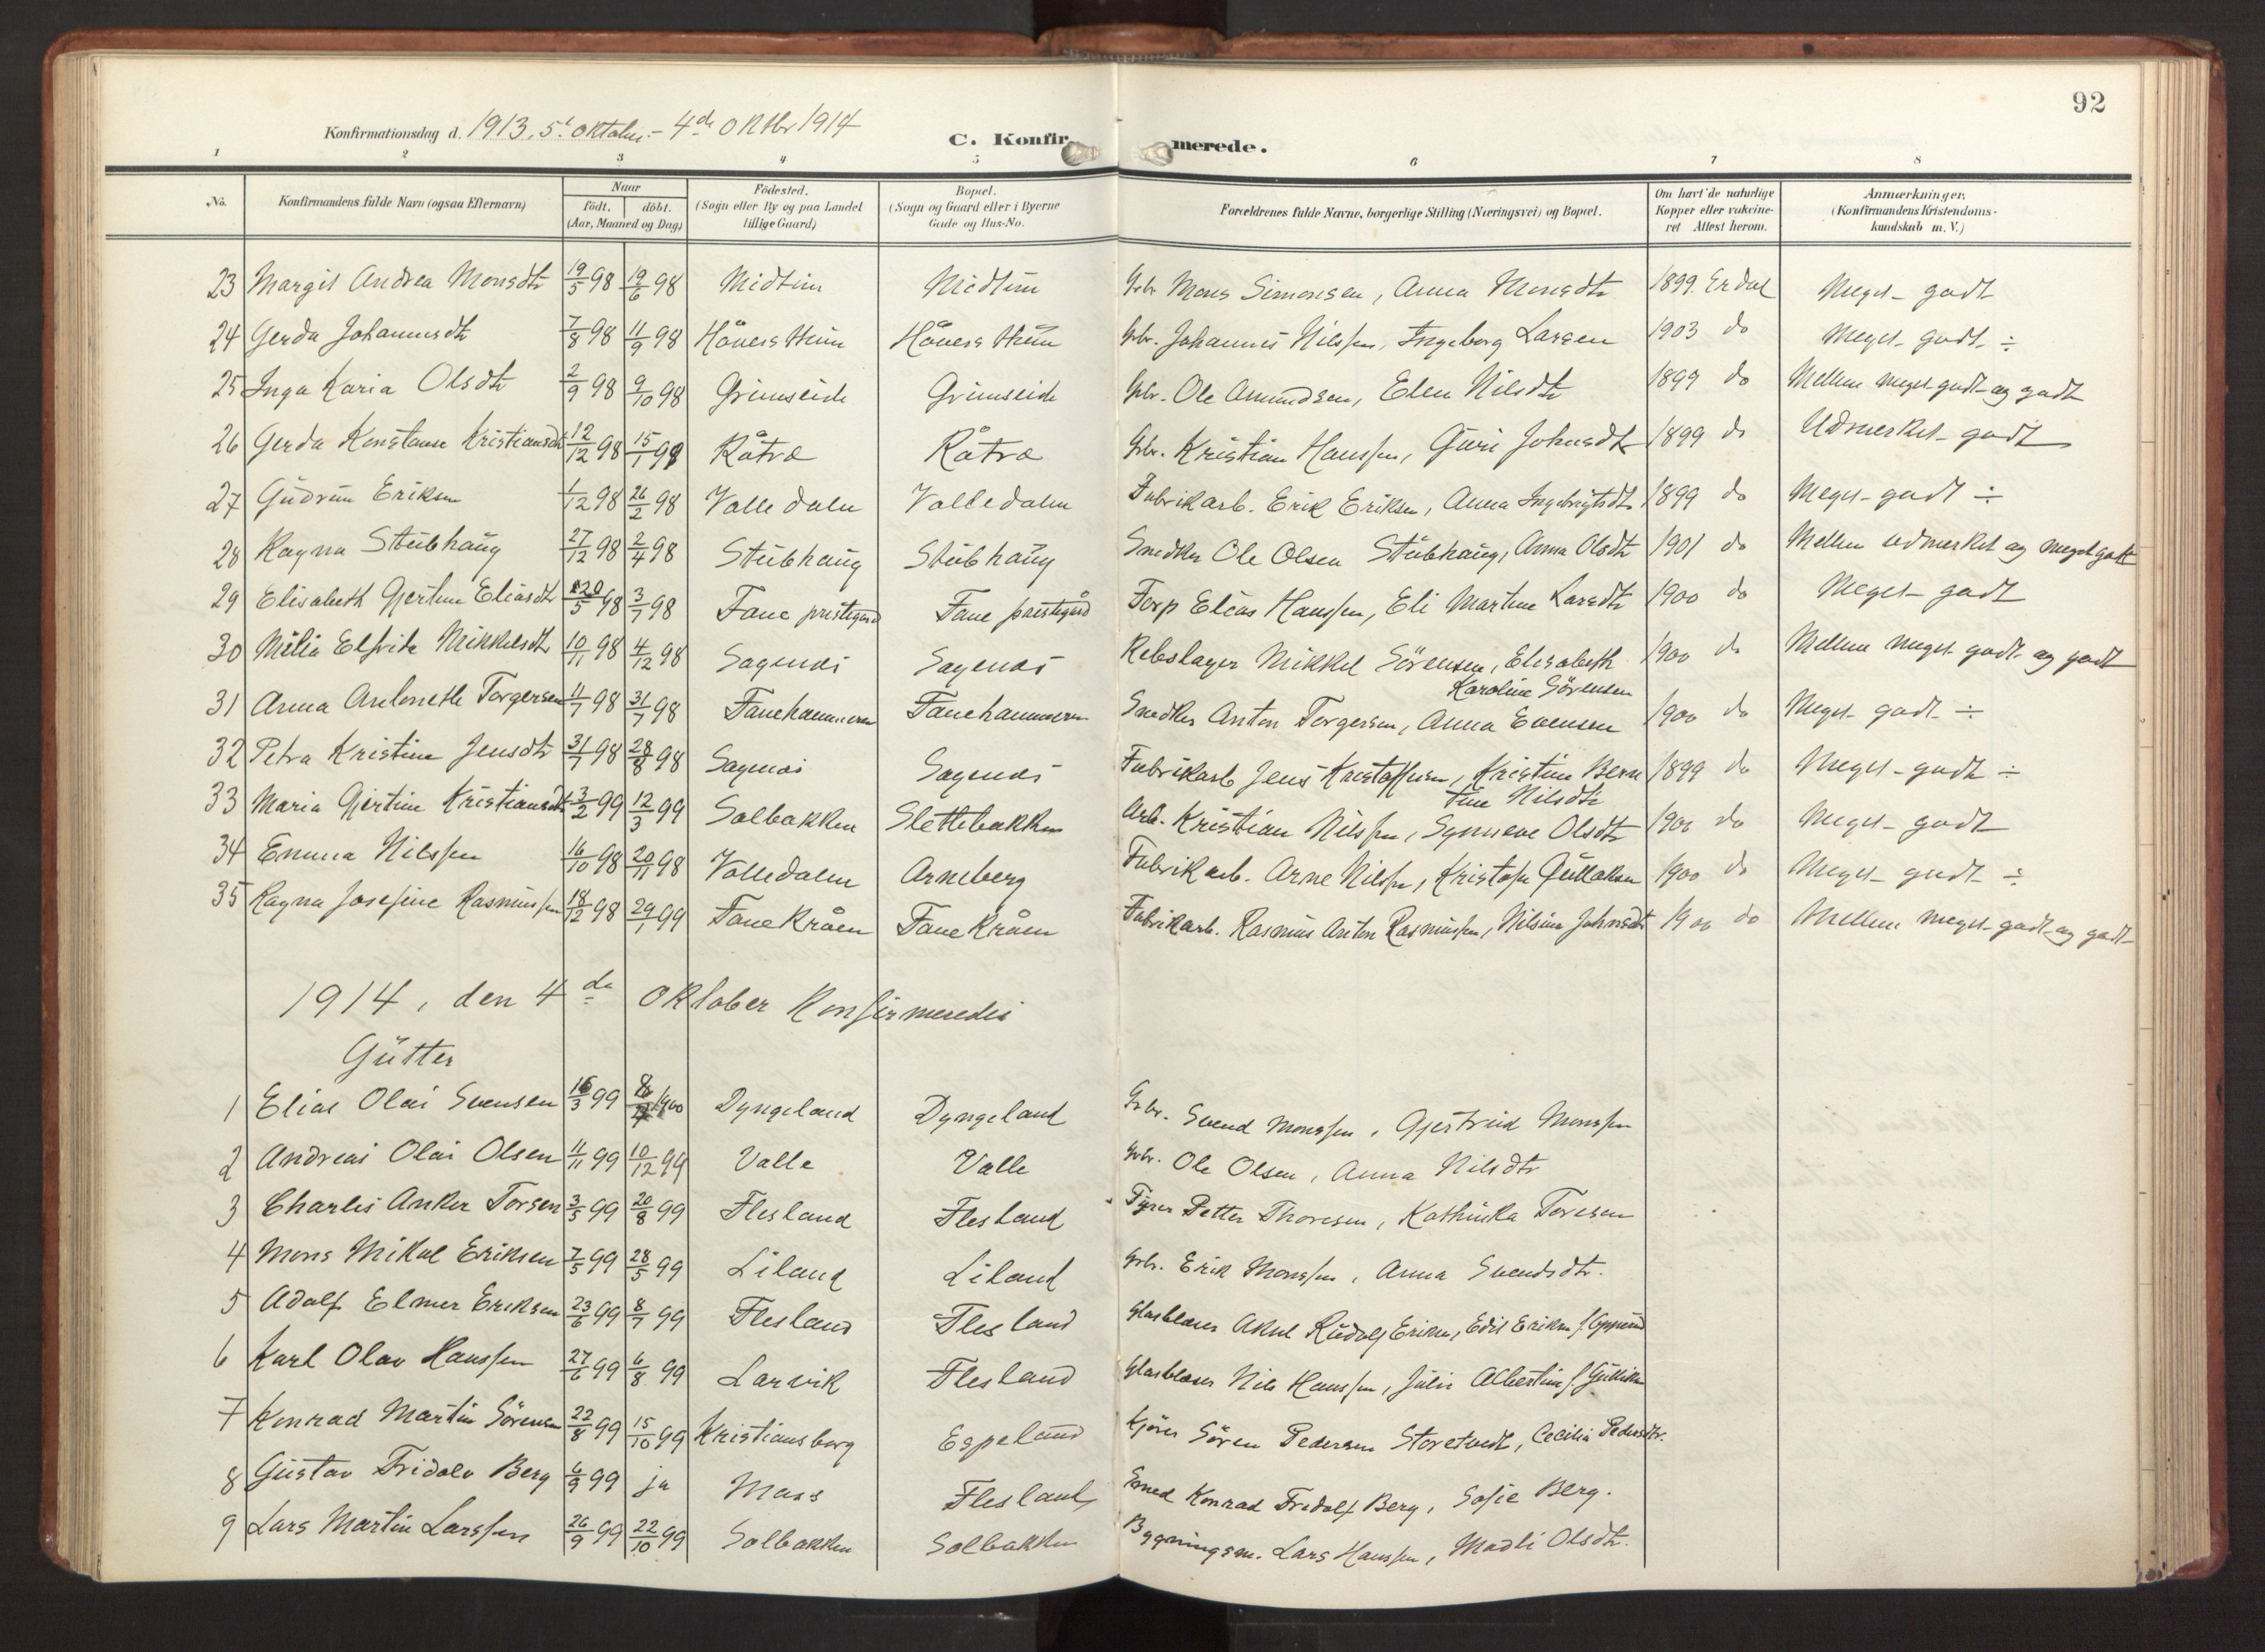 92
Konfirmationsdag d. 1913, 5t oktober - 4de Oktbr 1914
C. Konfirmerede.
1 2 3 4 5 6 7 8
No. Konfirmandens fulde Navn (ogsaa Efternavn) Naar født. døbt. (Aar, Maaned og Dag) Fødested. (Sogn eller By og paa Landet tillige Gaard) Bopæl. (Sogn og Gaard eller i Byerne Gade og Hus-No. Forældrenes fulde Navne, borgerlige Stilling (Næringsvei) og Bopæl. Om havt de naturlige Kopper eller vakcineret Attest herom. Anmærkninger, (Konfirmandens Kristendomskundskab m. V.)
23 Margit Andrea Monsdtr 19/5 98 19/6 98 Midtun Midtun Gbr. Mons Simonsen, Anna Monsdtr 1899. Erdal Meget godt
24 Gerda Johannesdtr 7/8 98 11/9 98 Håvers Stuen Håvers Stuen Gbr. Johannes Nilssen, Ingeborg Larsen 1903 do Meget godt ÷
25 Inga Karia Olsdtr 2/9 98 9/10 98 Grimseide Grimseide Gbr. Ole Amundsen, Elen Nilsdtr 1899 do Mellem meget godt og godt
26 Gerda Konstanse Kristiansdtr 12/12 98 15/1 99 Råtræ Råtræ Gbr. Kristian Hanssen, Guri Johnsdtr 1899 do Udmerket godt
27 Gudrun Eriksen 1/12 98 26/2 98 Valle dalen Valledalen Fabrikarb. Erik Eriksen, Anna Ingebrigtsdtr 1899 do Meget godt ÷
28 Ragna Stubhaug 27/12 98 2/4 98 Stubhaug Stubhaug Snedker Ole Olsen Stubhaug, Anna Olsdtr 1901 do Mellem udmerket og meget godt
29 Elisabeth Gjertine Eliasdtr 20/5 98 3/7 98 Fane prestegard Fane prestegård Forp Elias Hanssen, Eli Martine Larsdtr 1900 do Meget godt
30 Milla Elfride Mikkelsdtr 10/11 98 4/12 98 Sagenes Sagenes Rebslager Mikkel Sörensen, Elisabeth Karoline Sörensen 1900 do Mellem meget godt og godt
31 Anna Antonette Torgersen 11/7 98 31/7 98 Fanehammeren Fanehammeren Snedker Anton Torgersen, Anna Evensen 1900 do Meget godt ÷
32 Petra Kristine Jensdtr 31/7 98 28/8 98 Sagenes Sagenes Fabrikarb Jens Kristoffersen, Kristine Bern tine Nilsdtr 1899 do Meget godt ÷
33 Maria Gjertine Kristiansdtr 3/2 99 12/3 99 Solbakken Slettebakken Arb. Kristian Nilssen, Synneve Olsdtr 1900 do Meget godt
34 Emma Nilssen 16/10 98 20/11 98 Valledalen Arneberg Fabrikarb. Arne Nilssen, Kristofa Gullaksen 1900 do Meget godt ÷
35 Ragna Josefine Rasmussen 18/12 98 29/1 99 Fane Kråen Fane Kråen Fabrikarb. Rasmus Anton Rasmussen, Nilsine Johnsdtr 1900 do Mellem meget godt og godt
1914, den 4de oktober Konfirmeredes
Gutter
1 Elias Olai Svensen 16/3 99 1900 Dyngeland Dyngeland Gbr. Svend Monssen, Gjertrud Monssen
2 Andreas Olai Olsen 11/11 99 10/12 99 Valle Valle Gbr. Ole Olsen, Anna Nilsdtr
3 Charles Anker Torsen 3/5 99 20/8 99 Flesland Flesland Fyrer Petter Thoresen, Kathinka Toresen
4 Mons Mikal Eriksen 7/5 99 28/5 99 Liland Liland Gbr. Erik Monssen, Anna Svendsdtr.
5 Adolf Elmer Eriksen 23/6 99 8/7 99 Flesland Flesland Glasblæser Aksel Rudolf Eriksen, Edit Eriksen f.
6 Karl Olav Hanssen 27/6 99 6/8 99 Larvik Flesland Glasblæser Nils Hanssen, Julie Albertine f. Gulliksen
7 Konrad Martin Sörensen 22/8 99 15/10 99 Kristiansborg Espeland Kjører Sören Pedersen Storetvedt, Cecilia Pedersdtr.
8 Gustav Fridolv Berg 6/9 99 ja Moss Flesland Smed Konrad Fridolf Berg, Sofie Berg.
9 Lars Martin Larssen 26/9 99 22/10 99 Solbakken Solbakken Bygningsm. Lars Hanssen, Madli Olsdtr.